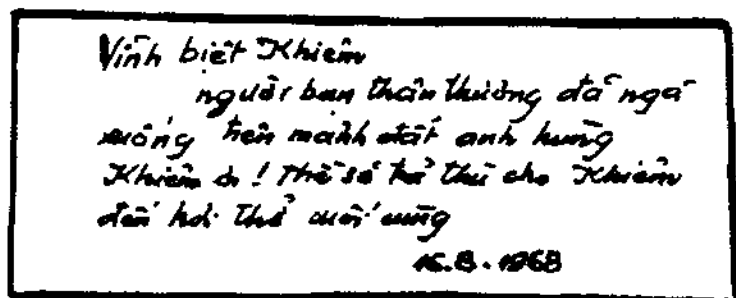 Vĩnh biệt Khiêm
người bạn thân thương đã ngã
xuống trên mảnh đất anh hùng
Khiêm ơi ! Thề sẽ trả thù cho Khiêm
đến hơi thở cuối cùng
16.8.1968